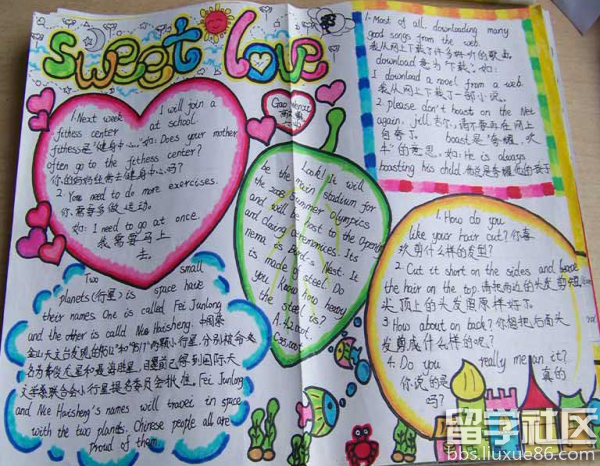 sweet love
1. Next week I will join a
fitness center at school.
fitness是"健身中心". 如: Does your mother
often go to the fitness center?
你的妈妈经常去健身中心吗?
2. You need to do more exercises.
你需要多做运动.
如: I need to go at once.
我需要马上
去.
Gao Wenxi
1. Most of all downloading many
good songs from the web.
我从网上下载了许多好听的歌曲.
download意为"下载". 如:
I download a novel from a web.
我从网上下载了一部小说.
2. please don't boast on the Net
again, jell 杰尔, 请不要再在网上
自夸了. boast是"夸耀, 吹
牛"的意思, 如: He is always
boasting his child.
Look! It will
be the main stadium for
the 2008 Summer Olympics
and will be host to the Opening
and closing ceremonies. Its
nema is Bird's Nest. It
is made of steel. Do
you know how heavy
the steel is?
A. 42000t
C35000t
Two small
planets(行星) is space have
their names One is called Fei Junlong
and the other is called Nie Haisheng. 中国紫
金山天文台发现的 两颗小行星, 分别被命
名为费俊龙星和聂海胜星, 日前已得到国际天
文学联合会小行星提名委员会批准, Fei Junlong
and Nie Haisheng's names will travel in space
with the two planets. Chinese people all are
Proud of them.
1. How do you
like your hair cut? 你喜
欢剪什么样的发型?
2. Cut it short on the sides and
the hair on the top. 请把两边的头发剪短
头顶上的头发照原样好了.
3. How about on back? 你想把后面头
发剪成什么样的呢?
4. Do you really mean it?
你说的是 真的
吗?
留学社区
bbs.liuxue86.com